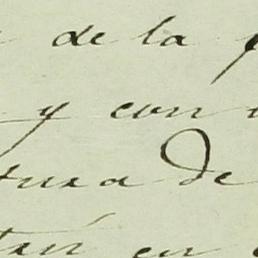 de la
y con
tura de
tán en